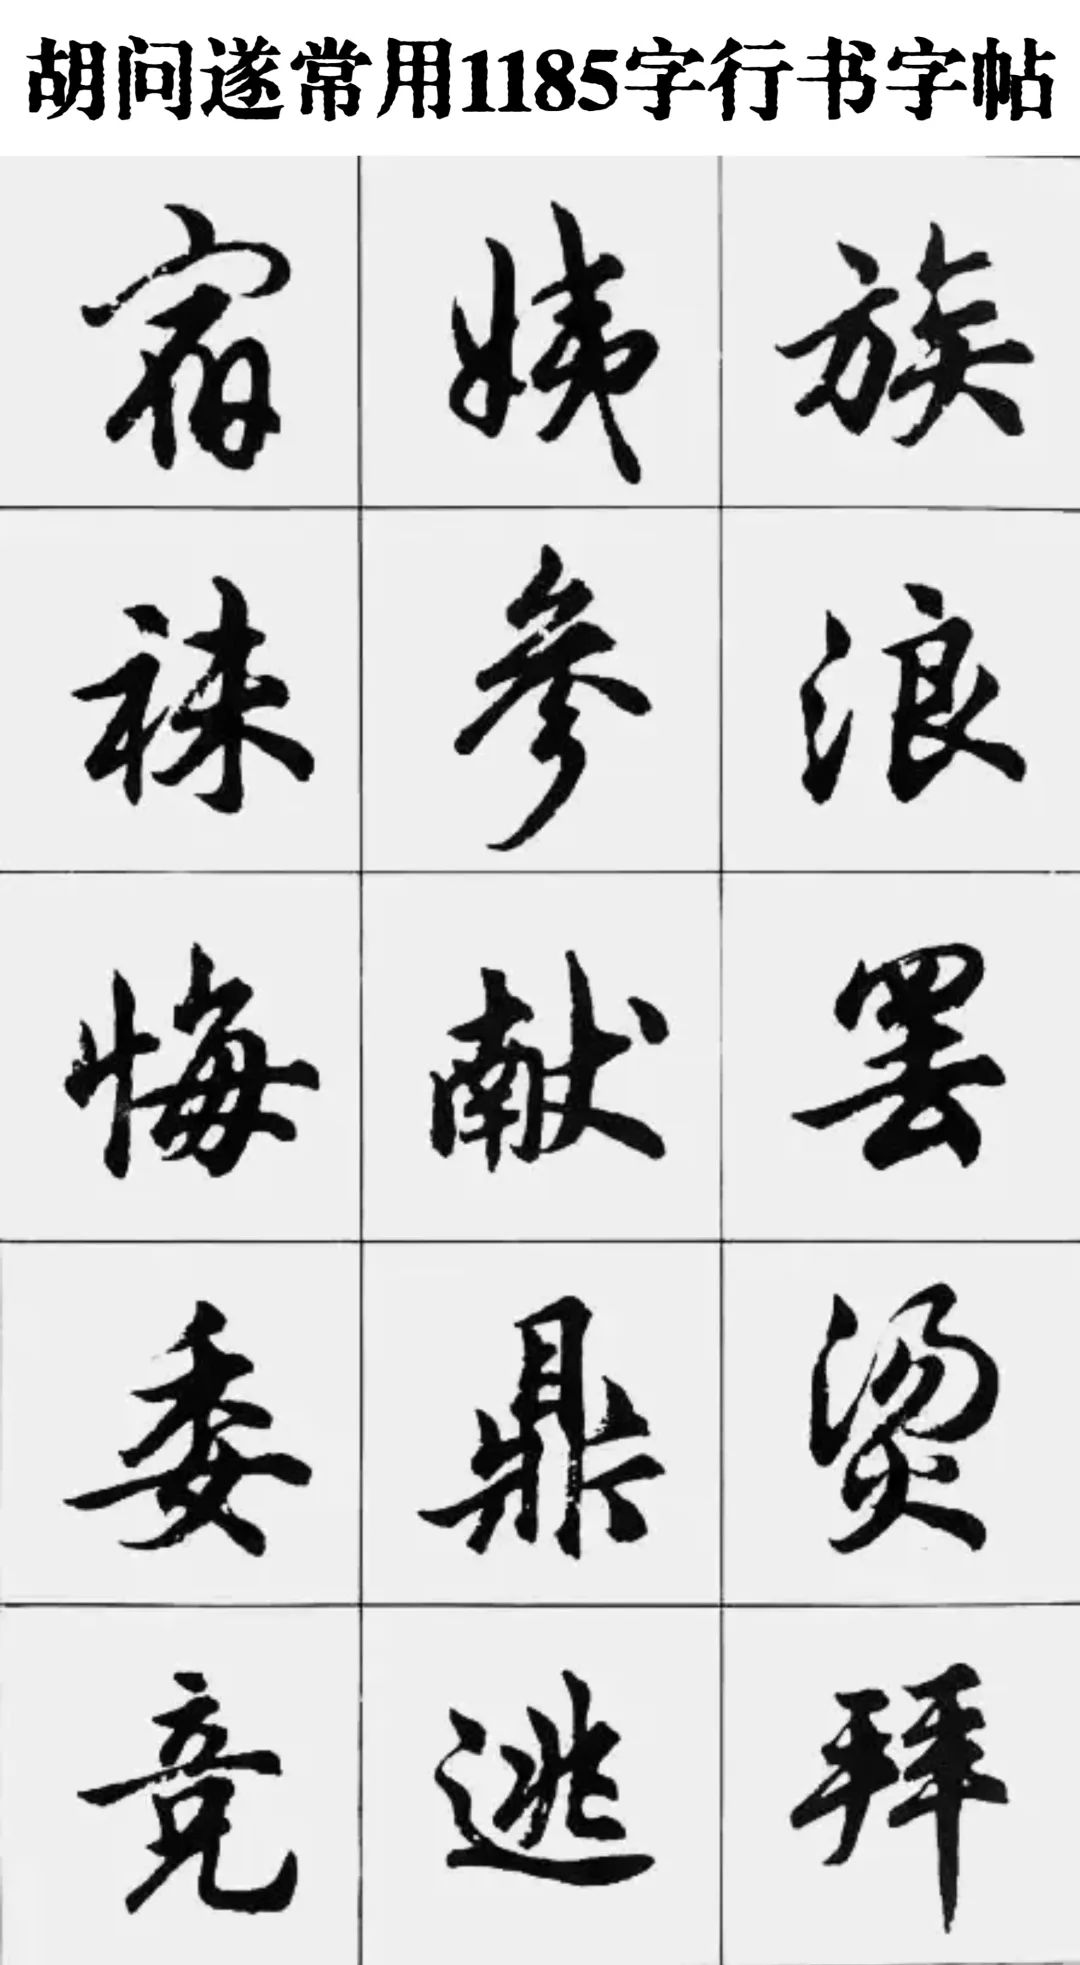 胡问遂常用1185字行书字帖
宿 姨 族
袜 参 浪
悔 献 罢
委 鼎 烫
竞 逃 拜